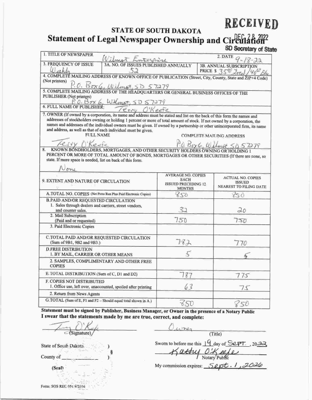 RECEIVED
STATE OF SOUTH DAKOTA
DEC 28 2022
Statement of Legal Newspaper Ownership and Circulation
SD Secretary of State
1. TITLE OF NEWSPAPER
Wilmot Enterprise
2. DATE
9-19-22
1. FREQUENCY OF ISSUE
Weekly
3A. NO. OF ISSUES PUBLISHED ANNUALLY
52
3B. ANNUAL SUBSCRIPTION
PRICE $
4. COMPLETE MAILING ADDRESS OF KNOWN OFFICE OF PUBLICATION (Street, City, County, State and ZIP+4 Code)
(Not printers)
P.O. Box 6, Wilmot, SD 57279
5. COMPLETE MAILING ADDRESS OF THE HEADQUARTERS OR GENERAL BUSINESS OFFICES OF THE
PUBLISHER (Not printer)
P.O. Box 6, Wilmot, SD 57279
6. FULL NAME OF PUBLISHER:
Terry O'Keefe
7. OWNER (If owned by a corporation, its name and address must be stated and list on the back of this form the names and
addresses of stockholders owning or holding 1 percent or more of total amount of stock. If not owned by a corporation, the
names and addresses of the individual owners must be given. If owned by a partnership or other unincorporated firm, its name
and address, as well as that of each individual must be given.
FULL NAME
COMPLETE MAILING ADDRESS
Terry O'Keefe
P.O. Box 6, Wilmot, SD 57279
8. KNOWN BONDHOLDERS, MORTGAGES, AND OTHER SECURITY HOLDERS OWNING OR HOLDING 1
PERCENT OR MORE OF TOTAL AMOUNT OF BONDS, MORTGAGES OR OTHER SECURITIES (If there are none, so
state. If more space is needed, list on back of this form.
None
9. EXTENT AND NATURE OF CIRCULATION
AVERAGE NO. COPIES
EACH
ISSUED PRECEDING 12
MONTHS
ACTUAL NO. COPIES
ISSUED
NEAREST TO FILING DATE
A. TOTAL NO. COPIES (Net Press Run Plus Paid Electronic Copies)
850
850
B. PAID AND/OR REQUESTED CIRCULATION
1. Sales through dealers and carriers, street vendors,
and counter sales.
32
20
2. Mail Subscription
(Paid and/or requested)
750
750
3. Paid Electronic Copies
C. TOTAL PAID AND/OR REQUESTED CIRCULATION
(Sum of 9B1, 9B2 and 9B3)
782
770
D. FREE DISTRIBUTION
1. BY MAIL, CARRIER OR OTHER MEANS
5
5
2. SAMPLES, COMPLIMENTARY AND OTHER FREE
COPIES
E. TOTAL DISTRIBUTION (Sum of C, D1 and D2)
787
775
F. COPIES NOT DISTRIBUTED
1. Office use, left over, unaccounted, spoiled after printing
63
75
2. Return from News Agents
G. TOTAL (Sum of E, F1 and F2 – Should equal total shown in A.)
850
850
Statement must be signed by Publisher, Business Manager, or Owner in the presence of a Notary Public
I swear that the statements made by me are true, correct, and complete:
Owner
(Signature)
(Title)
State of South Dakota )
Sworn to before me this 19 day of Sept. 2022
County of )
Kathy O'Keefe
Notary Public
(Seal)
My commission expires: Sept. 1, 2026